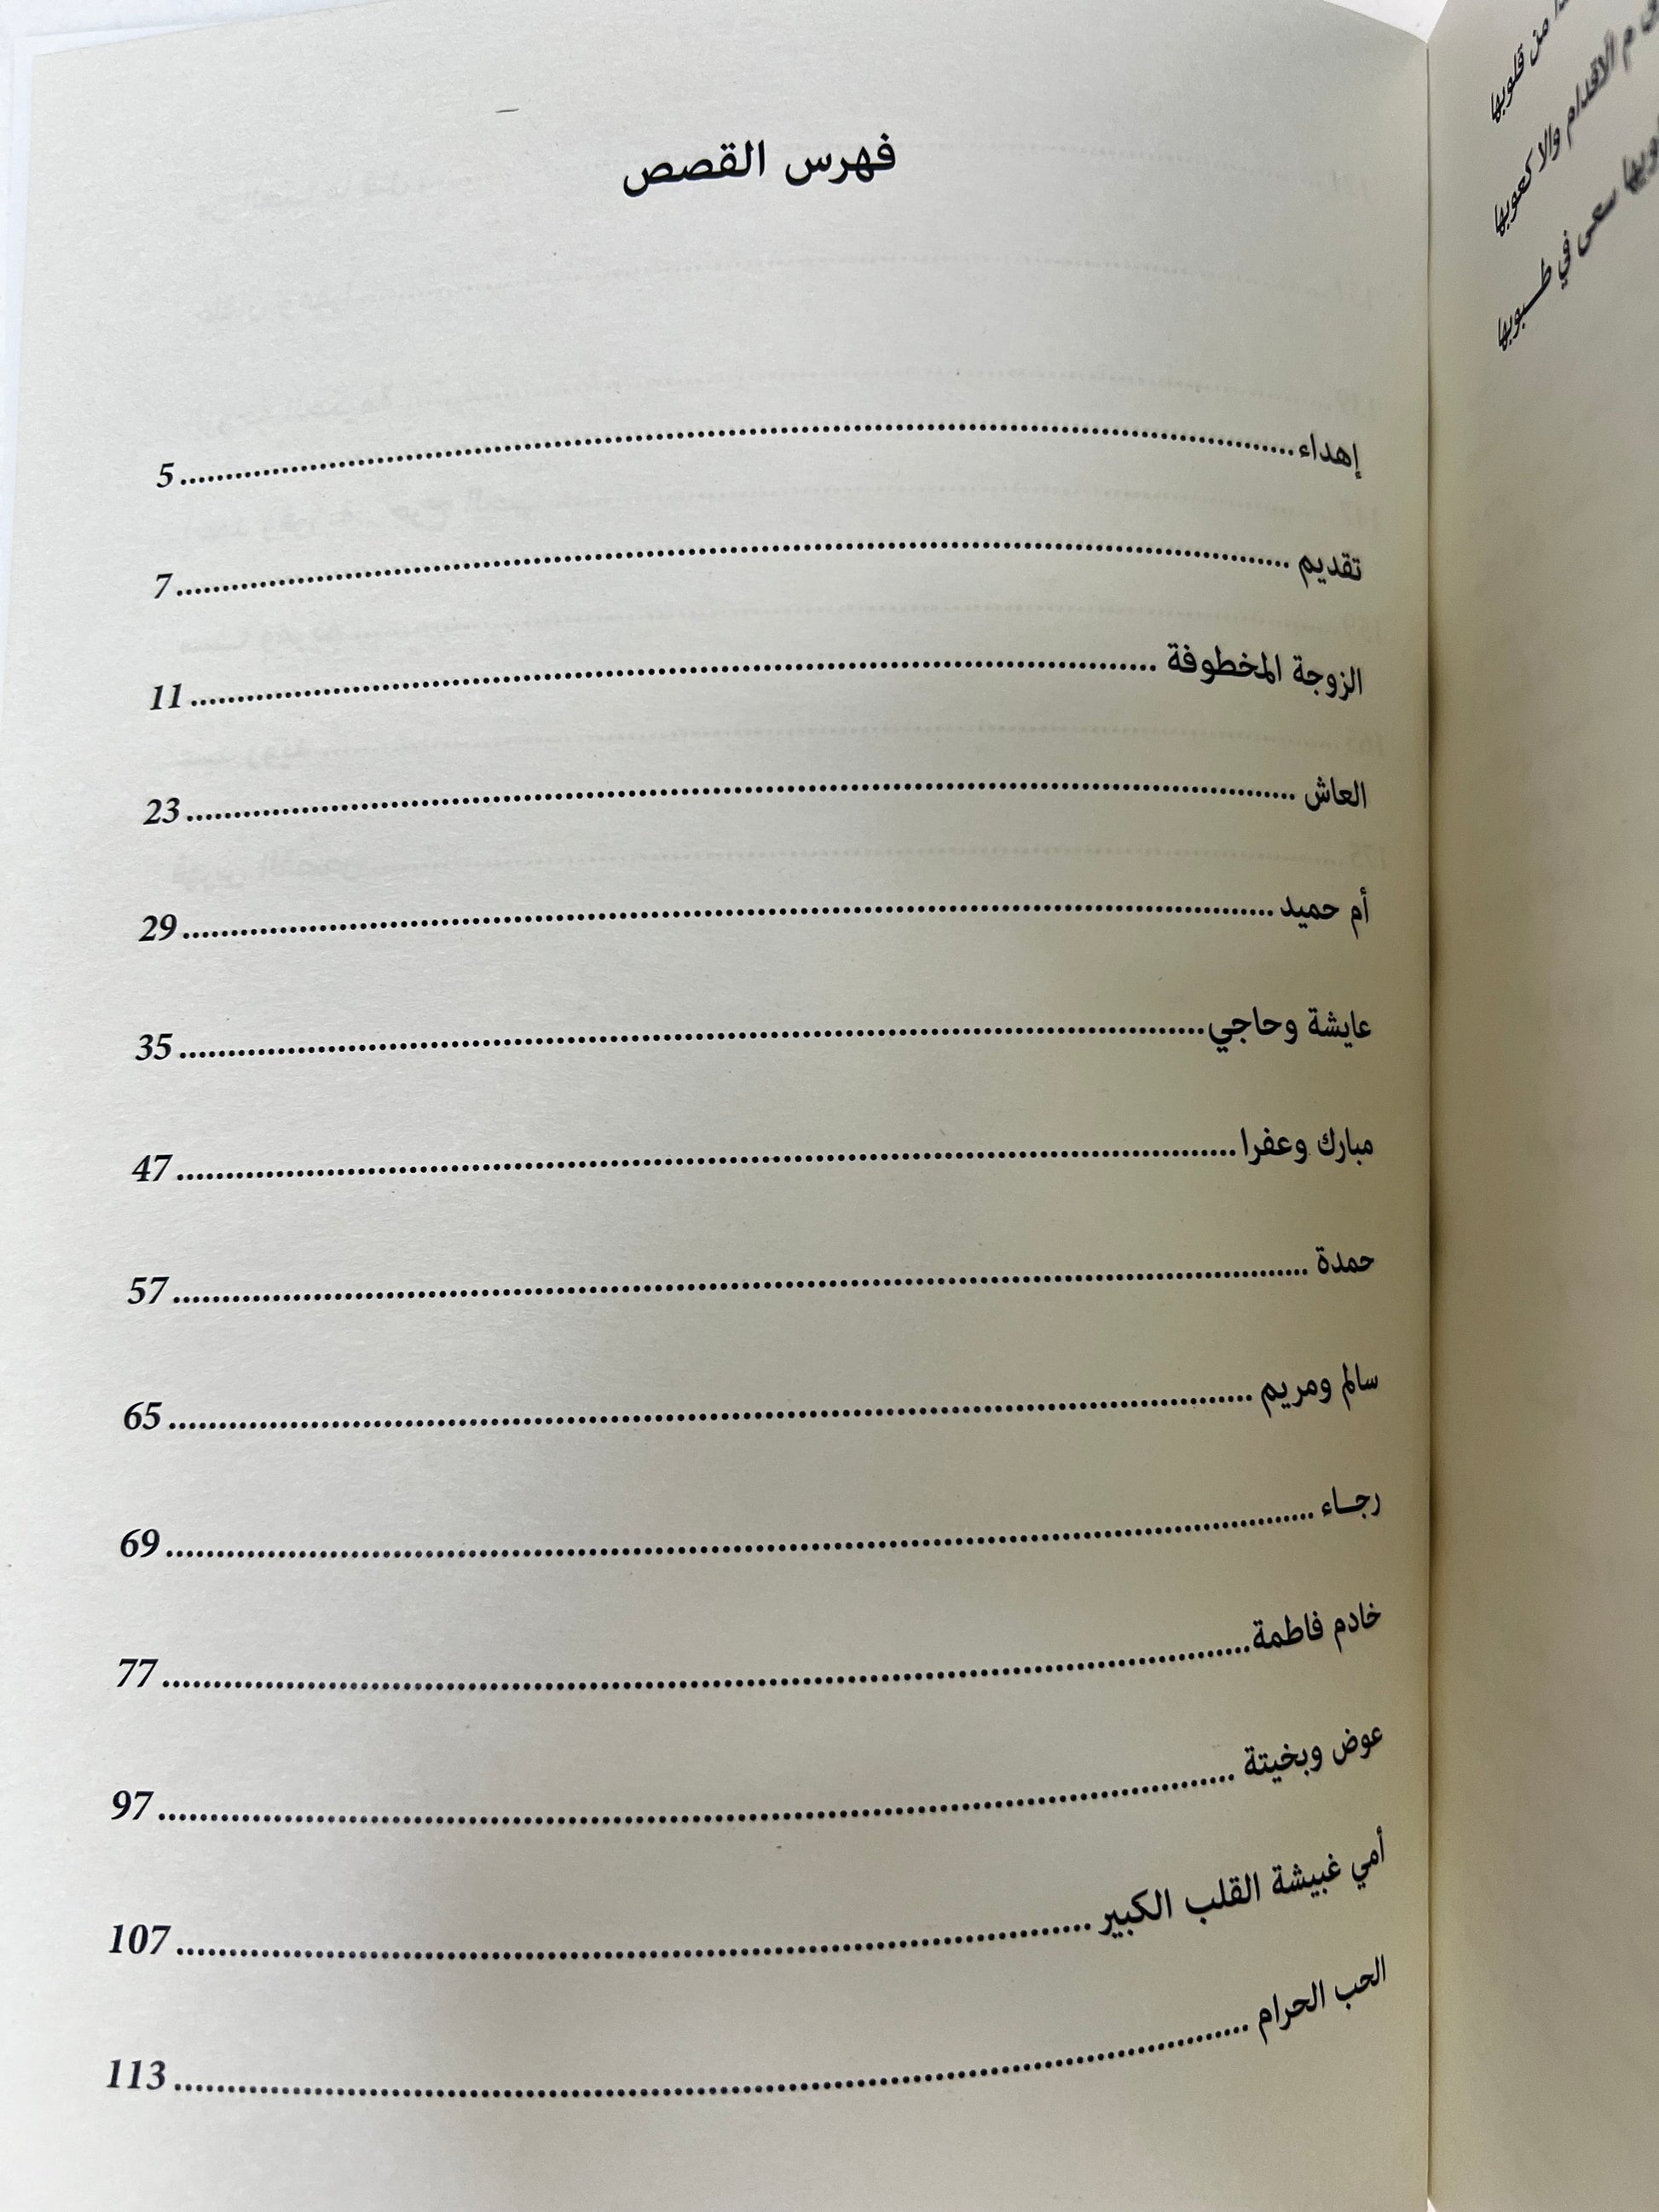 فهرس القصص
إهداء 5
تقديم 7
الزوجة المخطوفة 11
العاش 23
أم حميد 29
عايشة وحاجي 35
مبارك وعفرا 47
حمدة 57
سالم ومريم 65
رجـاء 69
خادم فاطمة 77
عوض وبخيتة 97
أمي غبيشة القلب الكبير 107
الحب الحرام 113
من قلوبها
م الأقدام والا كعوبها
سعى في طـبوبها